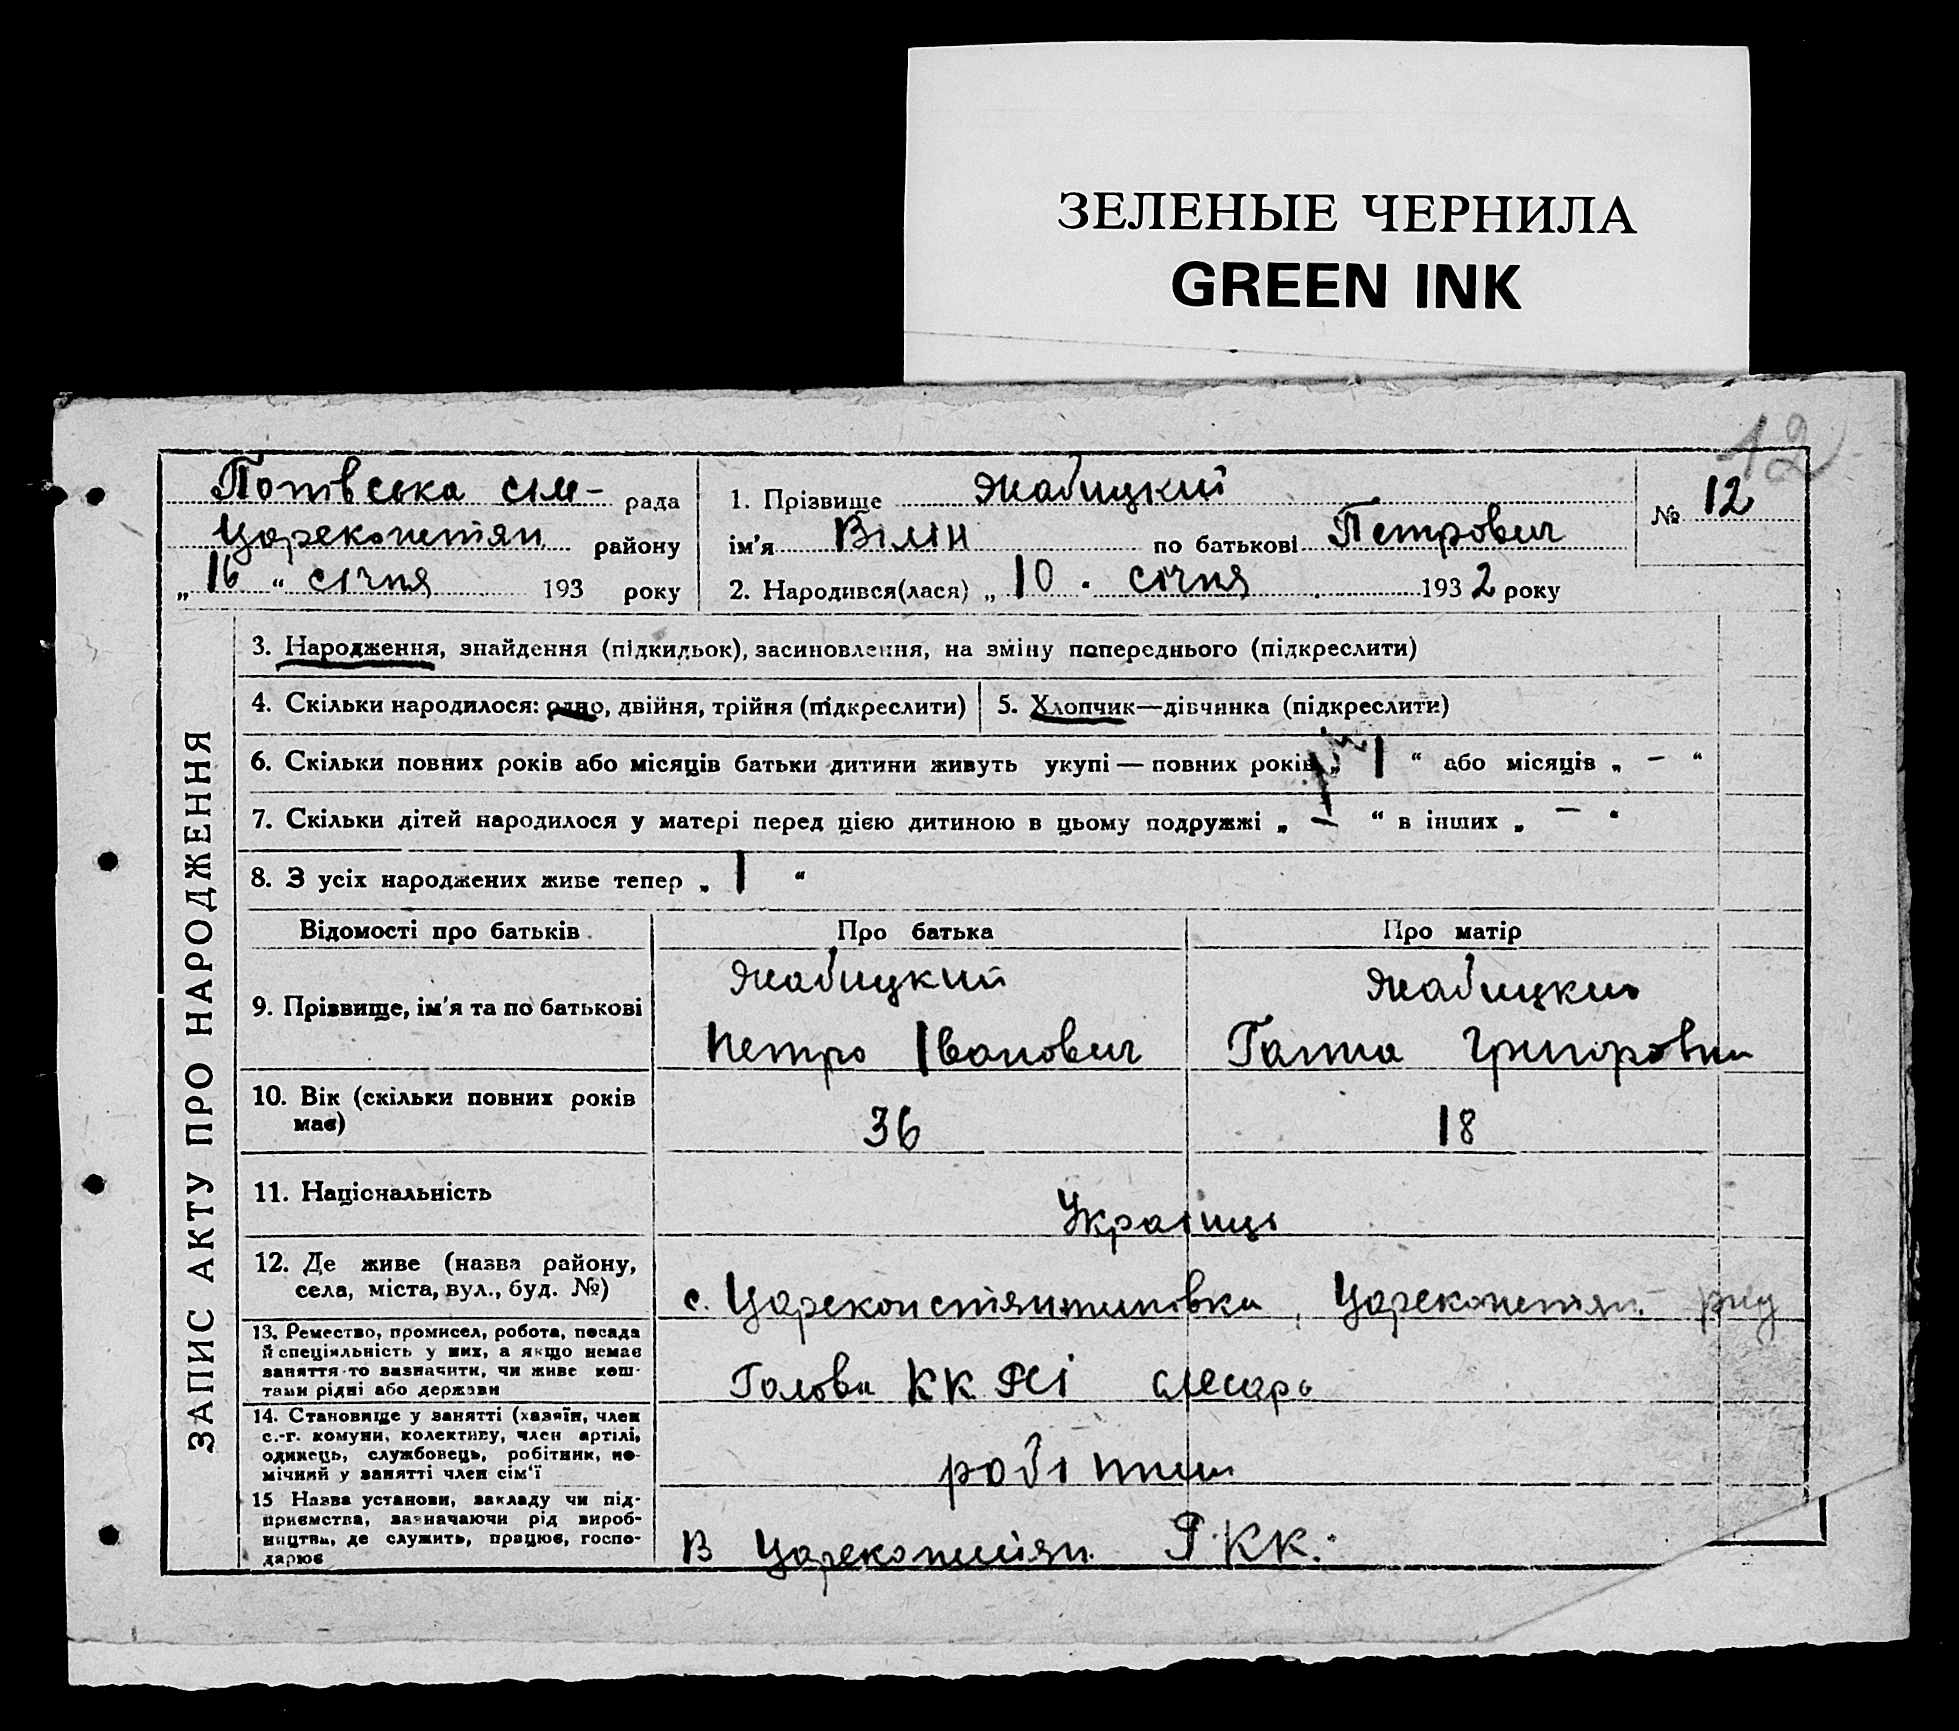 ЗЕЛЕНЫЕ ЧЕРНИЛА
GREEN INK
12
Попівська сіл- рада
Царекопстян району
„ 16 “ січня 193 року
1. Прізвище Жабицкий
ім'я Вілін по батькові Петрович
2. Народився(лася) „ 10 “ січня 1932 року
№ 12
ЗАПИС АКТУ ПРО НАРОДЖЕННЯ
3. Народження, знайдення (підкидьок), засиновлення, на зміну попереднього (підкреслити)
4. Скільки народилося: одно, двійня, трійня (підкреслити)
5. Хлопчик—дівчинка (підкреслити)
6. Скільки повних років або місяців батьки дитини живуть укупі — повних років „ 1 “ або місяців „ — “
7. Скільки дітей народилося у матері перед цією дитиною в цьому подружжі „ “ в інших „ — “
8. З усіх народжених живе тепер „ 1 “
Відомості про батьків Про батька Про матір
9. Прізвище, ім'я та по батькові
Жабицкий
Петро Іванович
Жабицкий
Ганна Григоровна
10. Вік (скільки повних років
має)
36 18
11. Національність
Українці
12. Де живе (назва району,
села, міста, вул., буд. №)
с. Цареконстянтинівка, Цареконстян.
13. Ремество, промисел, робота, посада
й спеціяльність у них, а якщо немає
заняття-то зазначити, чи живе кош-
тами рідні або держави
Голова КК РСІ слесарь
14. Становище у занятті (хазяїн, член
с.-г. комуни, колективу, член артілі,
одинець, службовець, робітник, по-
мічний у занятті член сім'ї
робітник
15 Назва установи, закладу чи під-
приємства, зазначаючи рід вироб-
ництва, де служить, працює, госпо-
дарює
В Цареконстян. Р.КК.